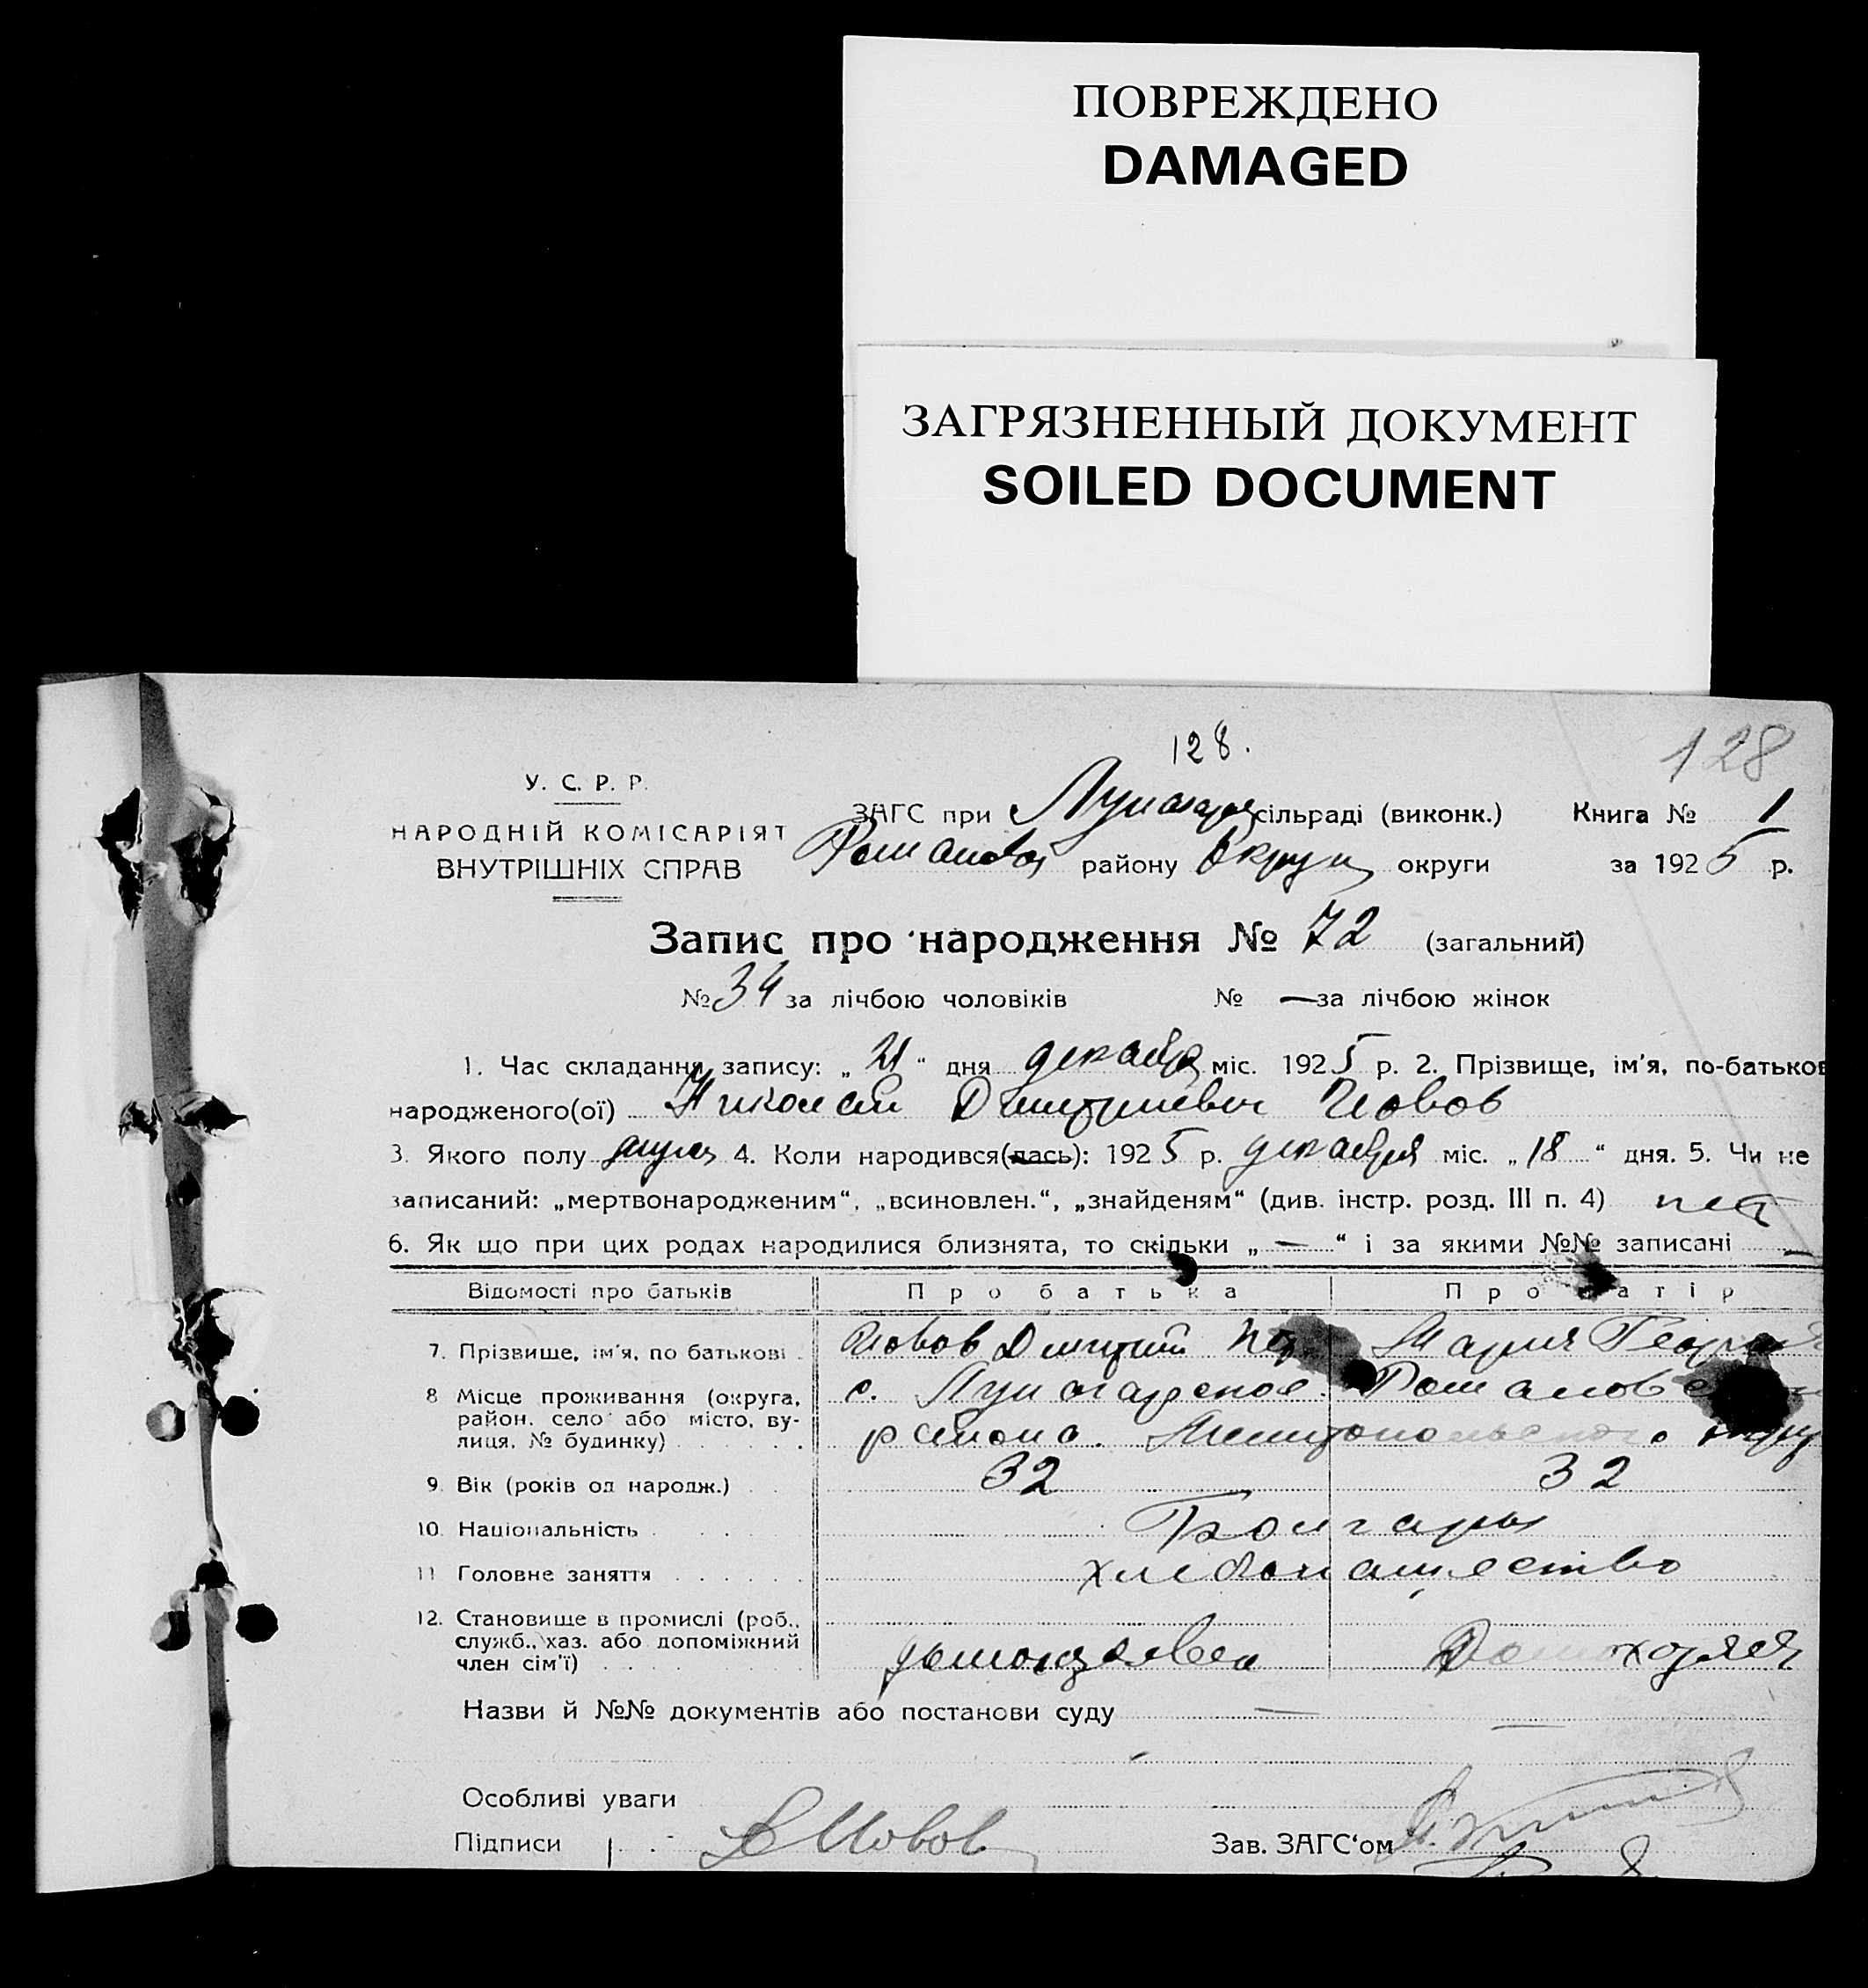 ПОВРЕЖДЕНО
DAMAGED
ЗАГРЯЗНЕННЫЙ ДОКУМЕНТ
SOILED DOCUMENT
128. 128
У. С. Р. Р.
НАРОДНІЙ КОМІСАРІЯТ
ВНУТРІШНІХ СПРАВ
ЗАГС при сільраді (виконк.) Книга № 1
району округи за 1925 р.
Запис про народження № 72 (загальний)
№ 34 за лічбою чоловіків № — за лічбою жінок
1. Час складання запису: „21“ дня декабря міс. 1925 р. 2. Прізвище, ім'я, по-батьков
народженого(ої) Николай Дмитриевич Иовов
3. Якого полу 4. Коли народився(лась): 1925 р. декабря міс. „18“ дня. 5. Чи не
записаний: „мертвонародженим“, „всиновлен.“, „знайденям“ (див. інстр. розд. III п. 4) нет
6. Як що при цих родах народилися близнята, то скільки „—“ і за якими №№ записані —
Відомості про батьків Про батька Про матір
7. Прізвище, ім'я, по батькові Иовов Дмитрий Мария
8 Місце проживання (округа, район, село або місто, вулиця, № будинку) с.
района. Мелитопольского
9. Вік (років од народж.) 32 32
10. Національність Болгары
11 Головне заняття хлебопашество
12. Становище в промислі (роб.,
служб., хаз. або допоміжний
член сім'ї) домохозяин
Назви й №№ документів або постанови суду — —
Особливі уваги
Підписи Иовов Зав. ЗАГС‘ом